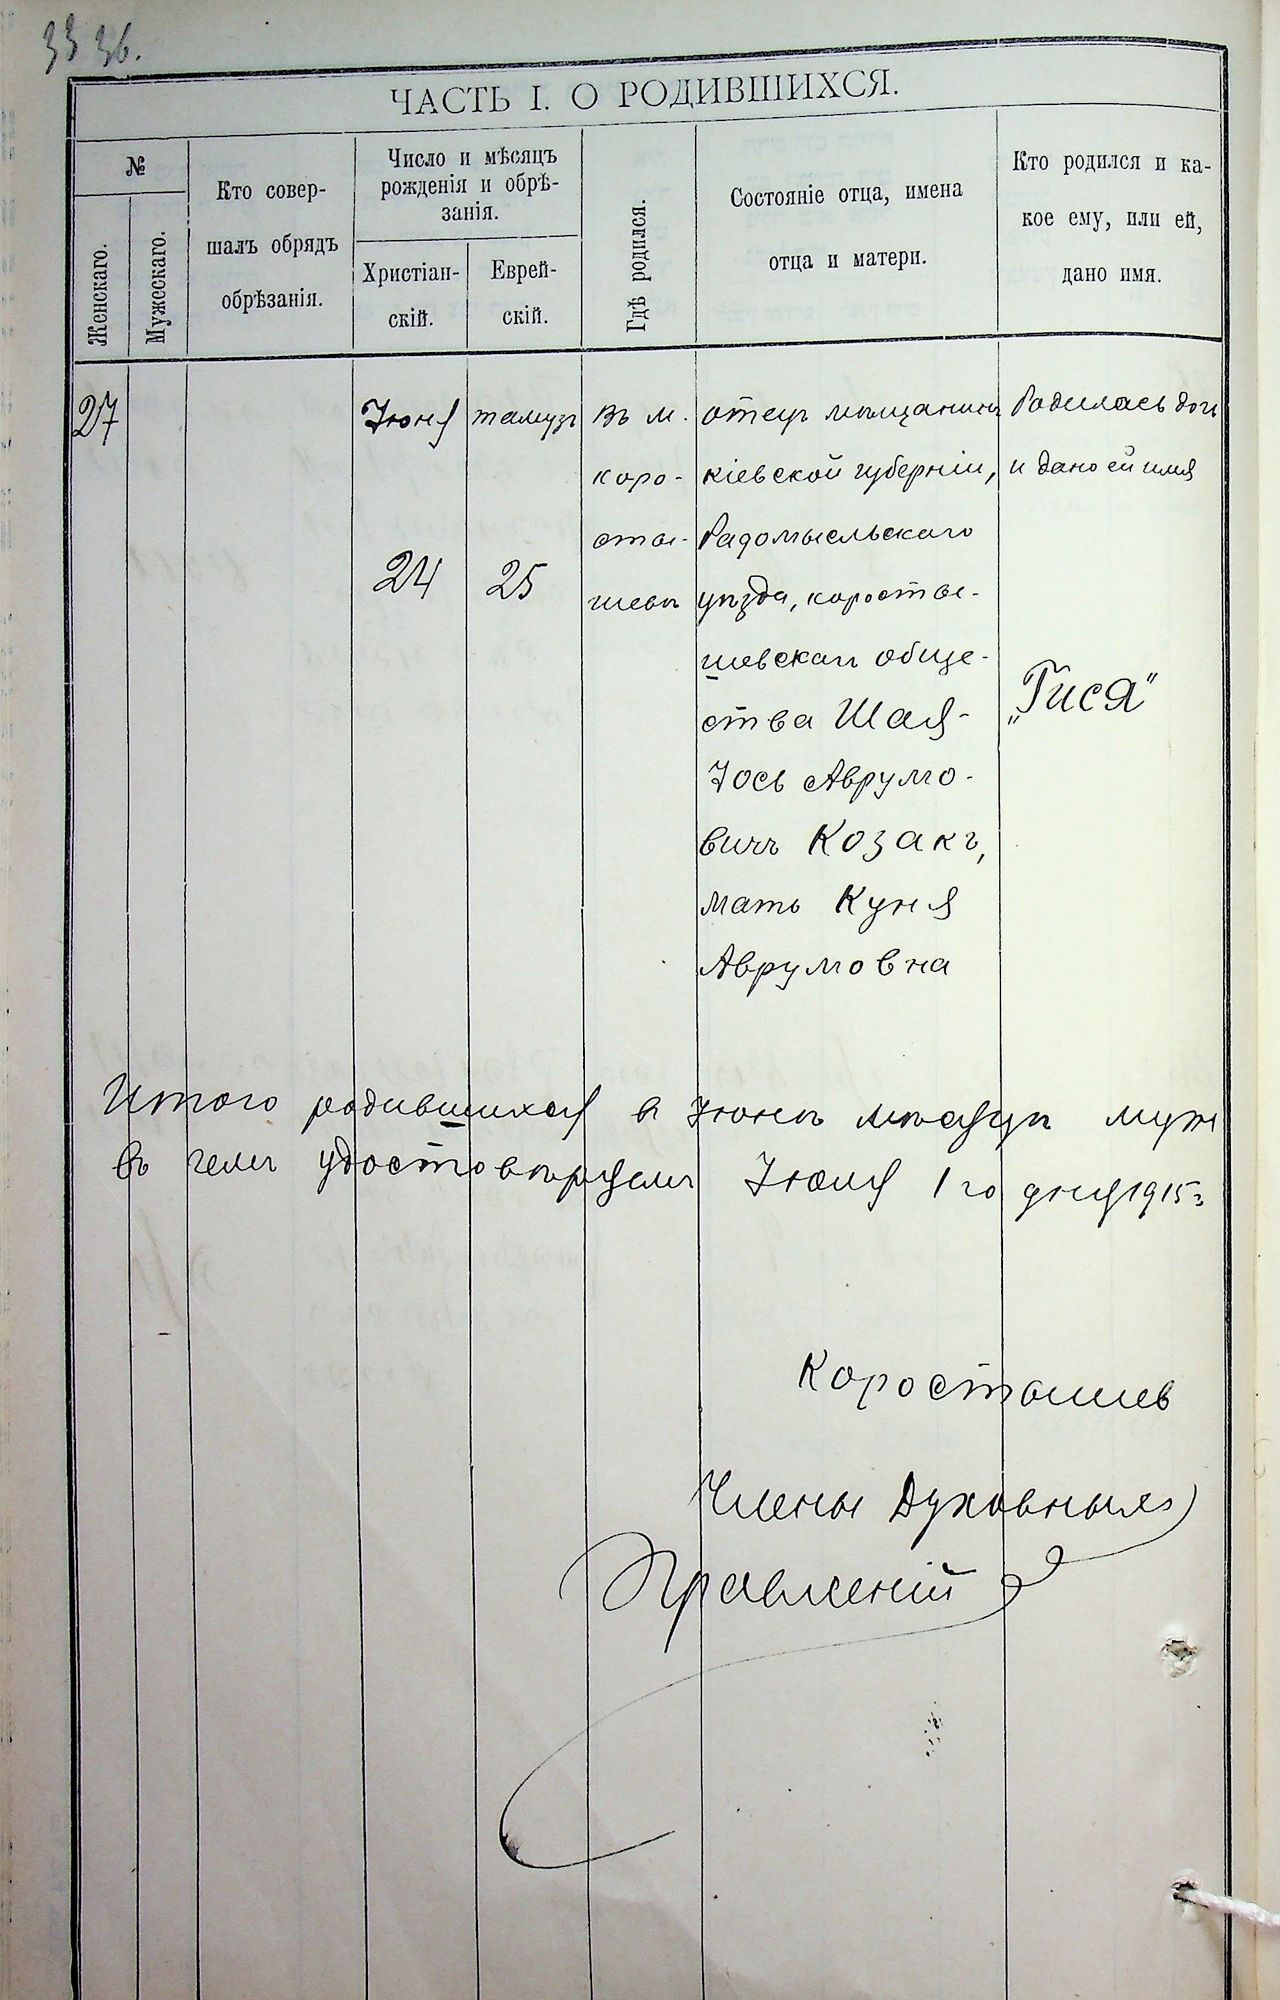 33 36.
ЧАСТЬ I. О РОДИВШИХСЯ.
№
Женскаго.
Мужескаго.
Кто совер-
шалъ обрядъ
обрѣзанія.
Число и мѣсяцъ
рожденія и обрѣ-
занія.
Христіан-
скій.
Еврей-
скій.
Гдѣ родился.
Состояніе отца, имена
отца и матери.
Кто родился и ка-
кое ему, или ей,
дано имя.
27
Іюня
24
тамузъ
25
въ м.
коро-
сты-
шевѣ
отецъ мѣщанинъ
кіевской губерніи,
Радомысльскаго
уѣзда, коросты-
шевскаго обще-
ства Шая-
Іось Аврумо-
вичъ Козакъ,
мать Куня
Аврумовна
Родилась доч
и дано ей имя
„Гися"
Итого родившихся в Іюнѣ мѣсяцѣ муж
въ чемъ удостовѣряемъ Іюля 1 го дня 1915 г
Коростышев
Члены Духовныхъ
Правленій